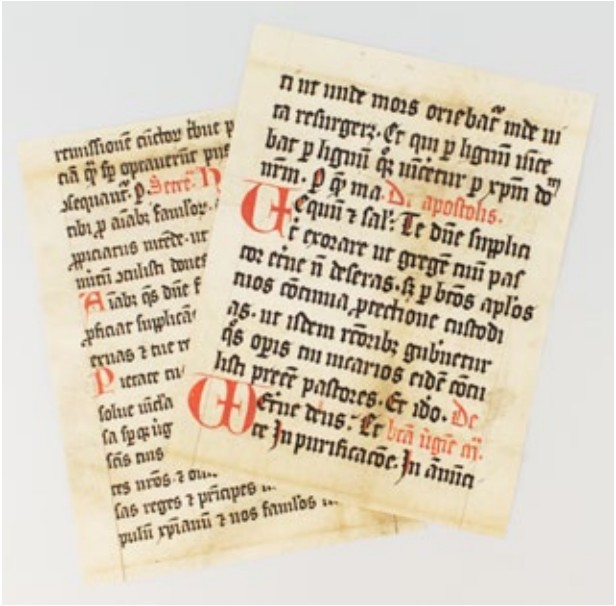 remissionē cūctoꝝ tbue p
ciā ꝙ sp optauerūt pijs
sequant᷑. p. Secret̄. H
tibi ꝓ aīabꝫ famloꝝ.
ꝓpiciatus intēde. ut
ꝯtulisti dones
Aīabꝫ qs dn̄e f
ꝓficiat supplicā
eruas ⁊ tue re
Pietate tu
solue vincla

scās tuas
res nr̄os ⁊ om
sas reges ⁊ prīcipes
pulū xp̄ianū ⁊ nos famlos
ti ut unde mors oriebat᷑ inde ui
ta resurgeꝫ. Et qui p lignū uīce
bat p lignū qꝫ uīcetur p xp̄m do
nrm. P q̄ ma. De apostolis.
Uequū ⁊ sal'. Te dn̄e supplici
t̄ exorare ut gregē tuū pas
tor et̄ne n̄ deseras. sꝫ p btōs apl'os
tuos cōtinua ꝓtectione custodi
as. ut isdem rc̄oribꝫ gub̄netur
q̄s opis tui uicarios eidē cōtu
listi preē pastores. Et ido. De
Et̄ne deus. Et btā ūgīe m̄.
te In purificacōe. In ānūci